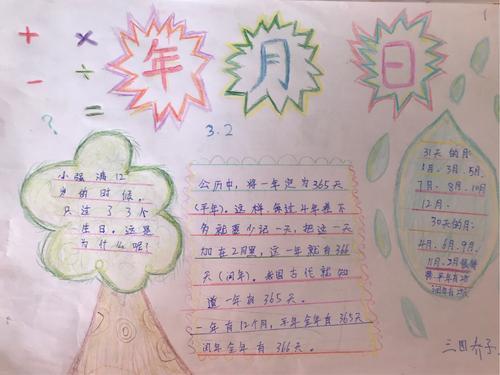 + ×
- ÷
? =
年 月 日
3.2
小强满12
岁的时候，
只过了3个
生日。这是
为什么呢？
公历中，将一年定为365天
(平年)。这样，每过4年差不
多就要少记一天，把这一天
加在2月里，这一年就有366
天(闰年)。我国古代就知
道一年有365天。
一年有12个月，平年全年有365天
闰年全年有366天。
31天的月：
1月、3月、5月、
7月、8月、10月
12月、
30天的月：
4月、6月、9月、
11月、2月
平年有28
闰年有29天
三四